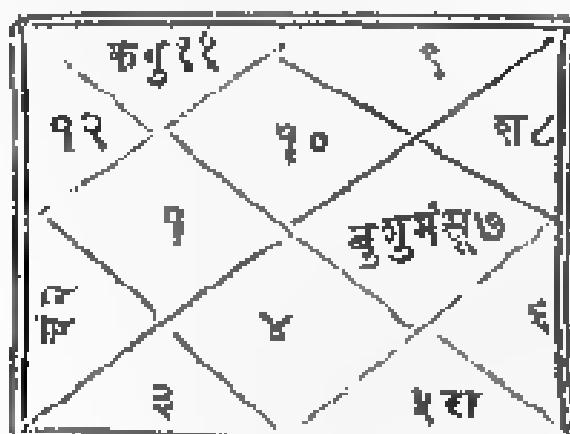 कगु११
९
१२
१०
श८
१
बुशुमंसू७
४
६
३
५रा